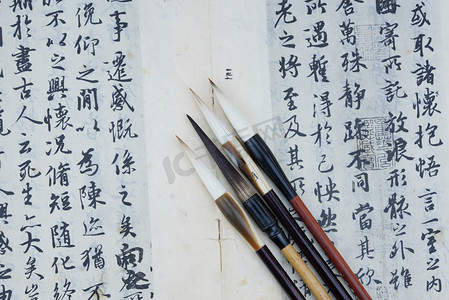 或取諸懷抱悟言一室之內
寄所託放浪形骸之外雖
萬殊靜躁不同當其欣
所遇蹔得於己怏然
老之將至及其所
事遷感慨係之矣向之
俛仰之閒以為陳迹猶不
不以之興懷況脩短隨化終
期於盡古人云死生亦大矣